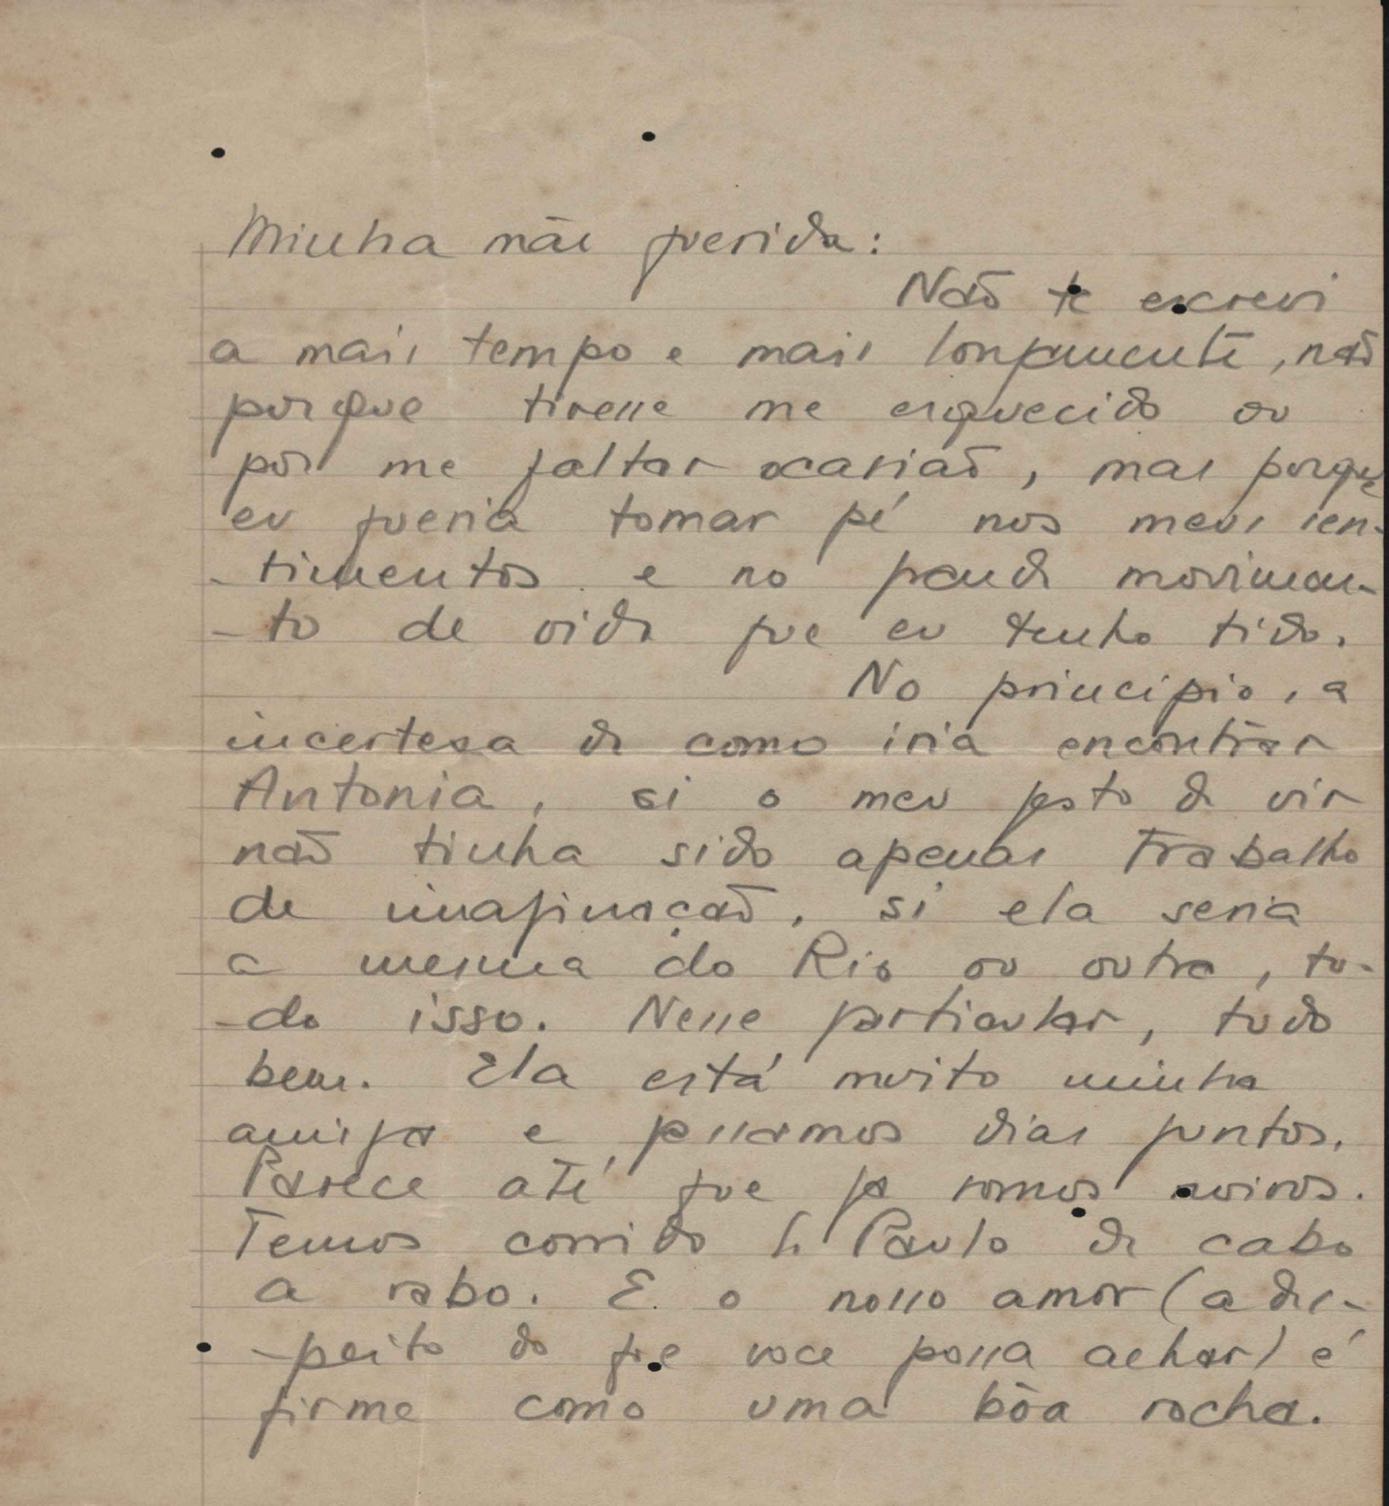 Minha mãe querida:
Não te escrevi
a mais tempo e mais longamente, não
porque tivesse me esquecido ou
por me faltar ocasião, mas porque
eu queria tomar pé nos meus sen-
-timentos e no grande movimen-
-to de vida que eu tenho tido.
No principio, a
incertesa de como iria encontrar
Antonia, si o meu gesto de vir
não tinha sido apenas trabalho
de imaginação, si ela seria
a mesma do Rio ou outra, tu-
-do isso. Nesse particular, tudo
bem. Ela está muito minha
amiga e passamos dias juntos.
Parece até que ja somos noivos.
Temos corrido S. Paulo de cabo
a rabo. E o nosso amor (a des-
-peito do que voce possa achar) é
firme como uma bôa rocha.